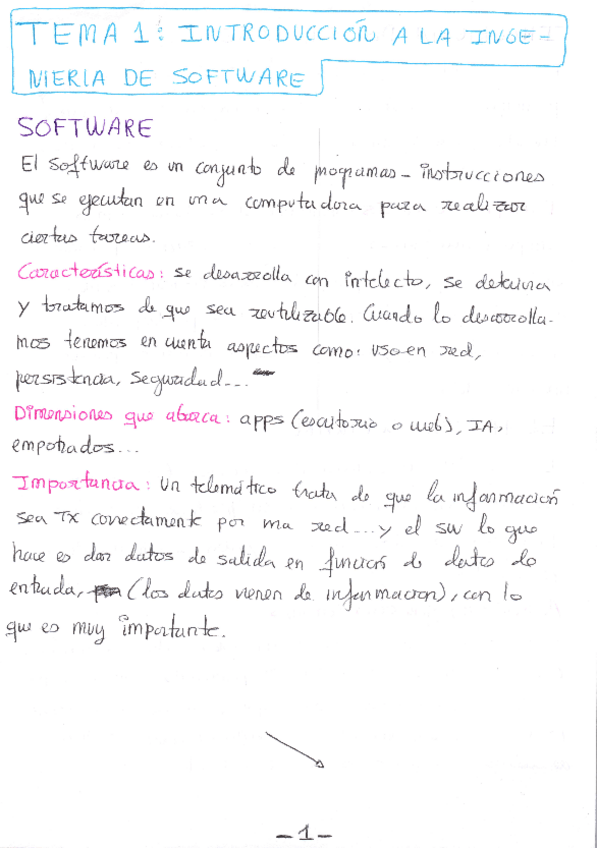 TEMA 1: INTRODUCCIÓN A LA INGE-
NIERIA DE SOFTWARE
SOFTWARE
El software es un conjunto de programas - instrucciones
que se ejecutan en una computadora para realizar
ciertas tareas.
Características: se desarrolla con intelecto, se deteriora
y tratamos de que sea reutilizable. Cuando lo desarrolla-
mos tenemos en cuenta aspectos como: uso en red,
persistencia, seguridad...
Dimensiones que abarca: apps (escritorio o web), IA,
empotrados...
Importancia: Un telemático trata de que la información
sea TX correctamente por una red... y el sw lo que
hace es dar datos de salida en función de datos de
entrada, (los datos vienen de información), con lo
que es muy importante.
-1-